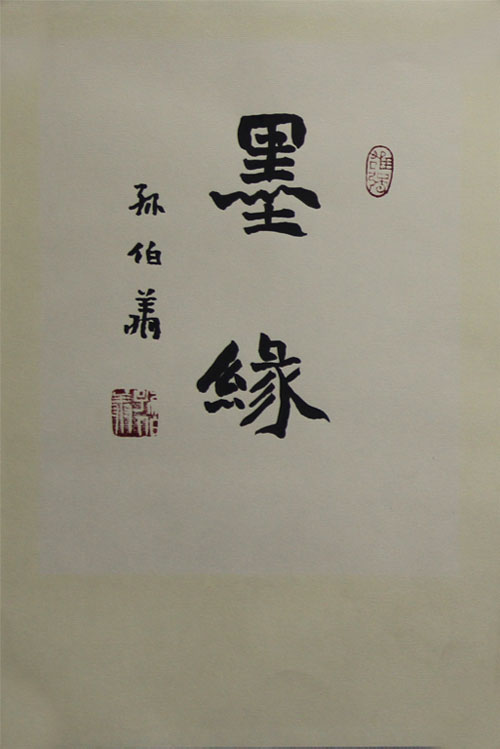 墨緣
孙伯翔